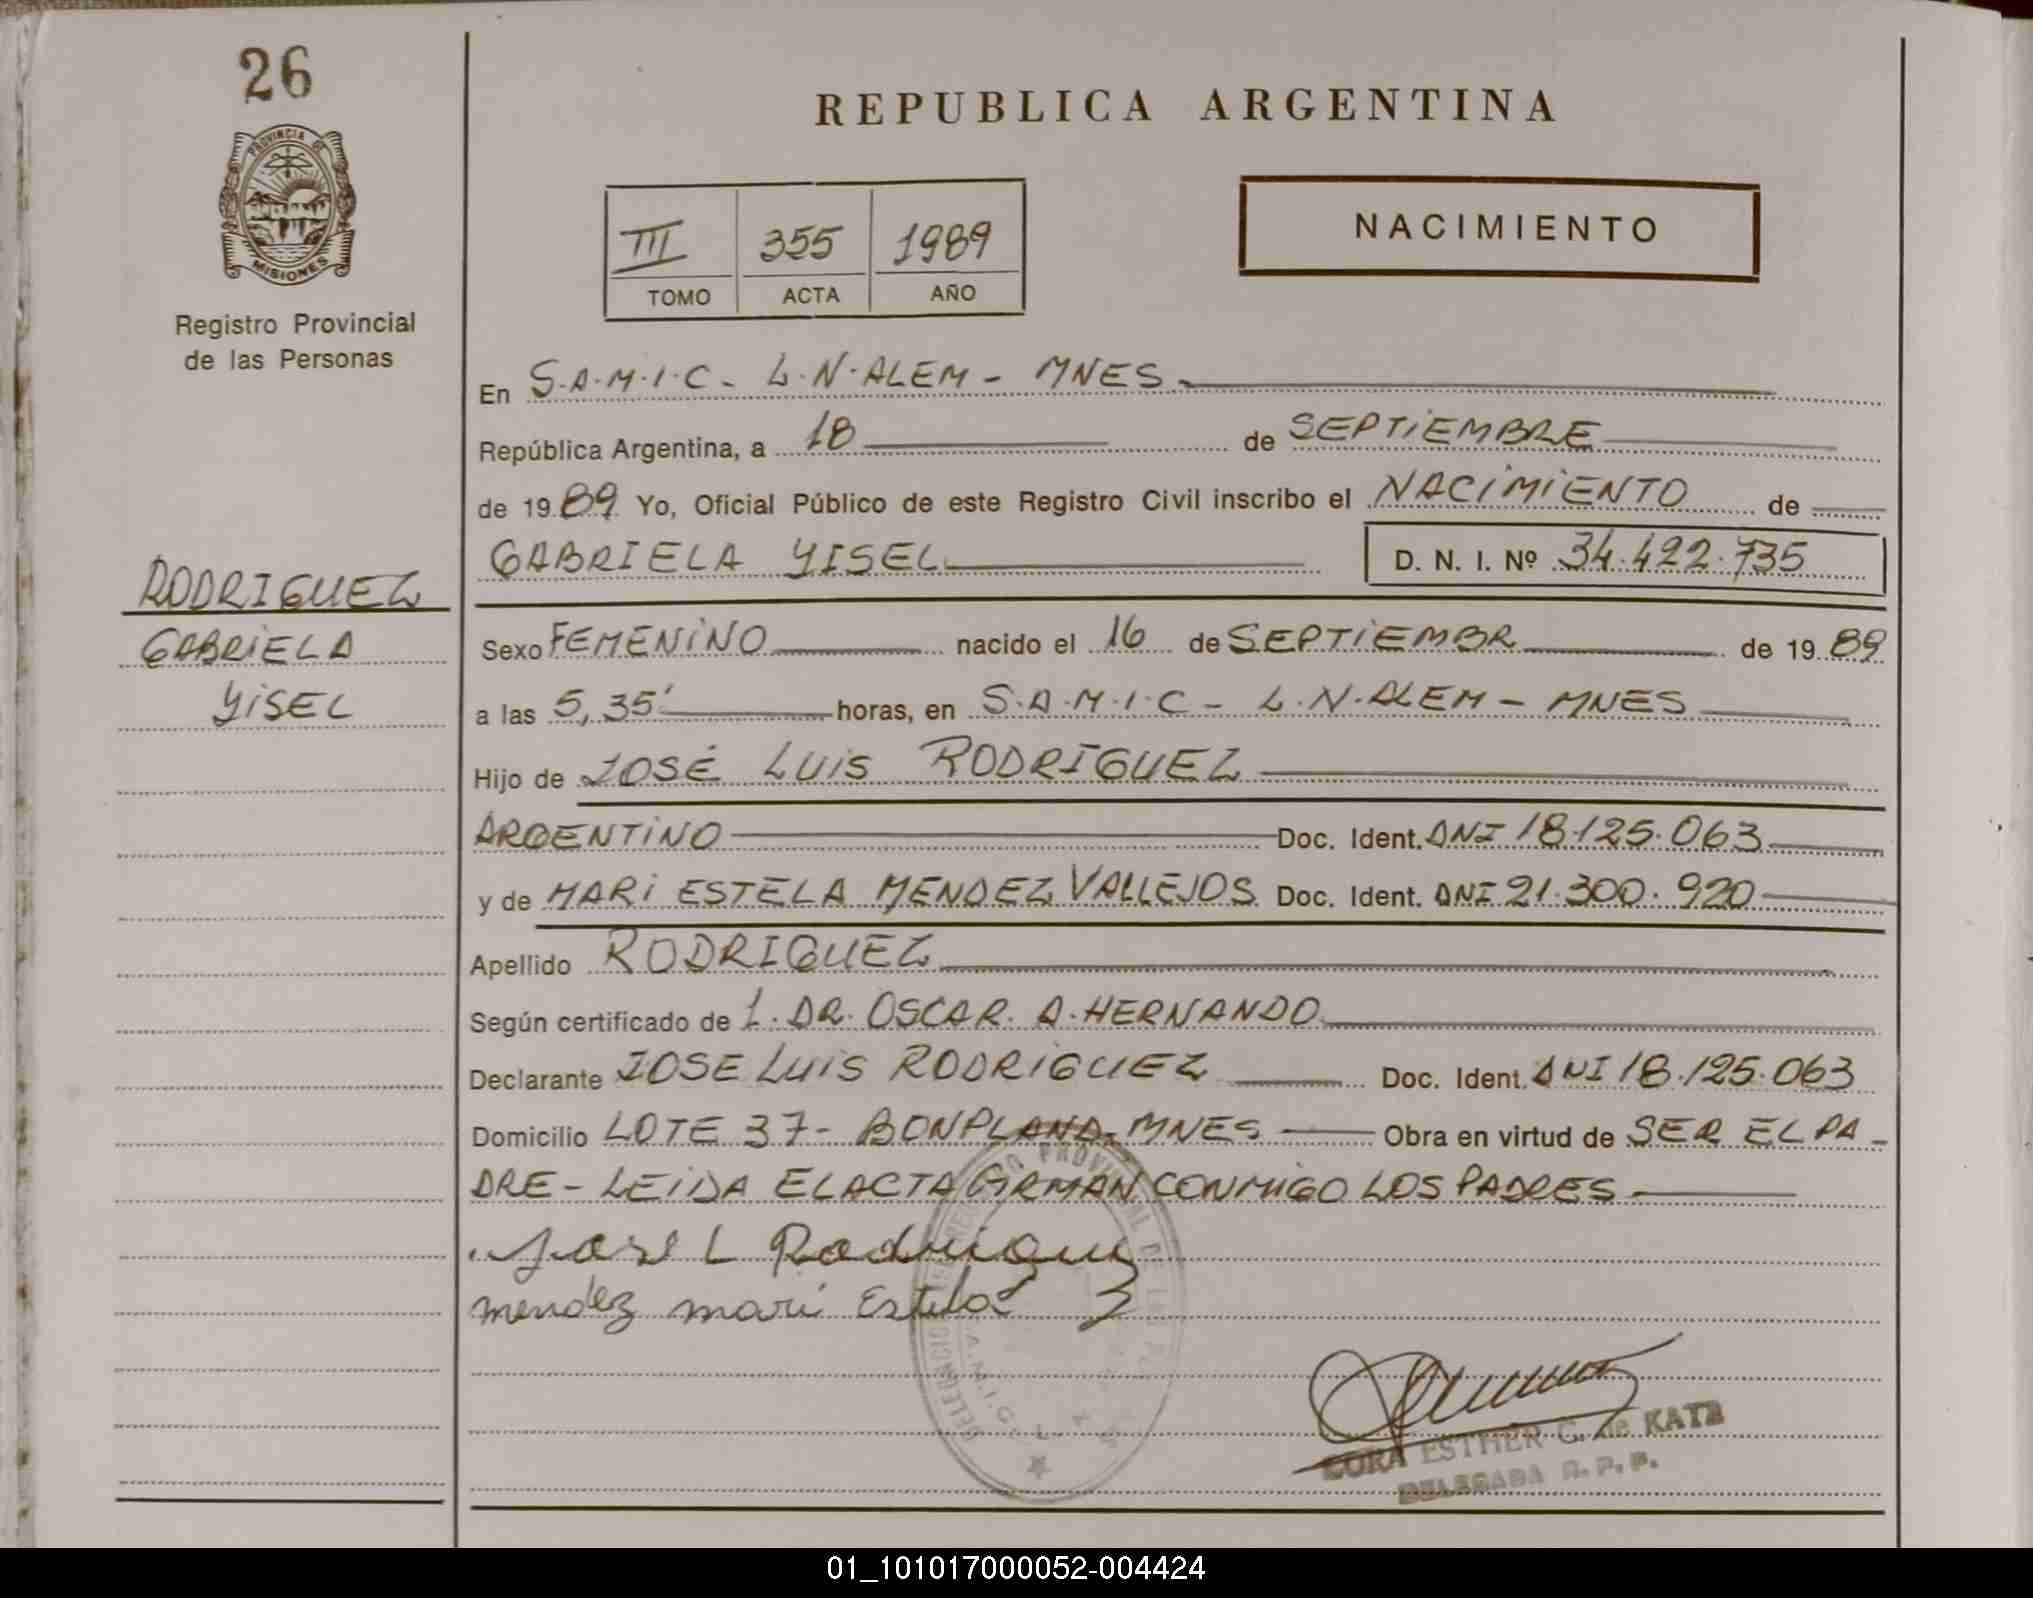 26
PROVINCIA DE
MISIONES
Registro Provincial
de las Personas
REPUBLICA ARGENTINA
III 355 1989
TOMO ACTA AÑO
NACIMIENTO
En S.A.M.I.C - L.N.ALEM - MNES
República Argentina, a 18 de SEPTIEMBRE
de 1989 Yo, Oficial Público de este Registro Civil inscribo el NACIMIENTO de
GABRIELA YISEL D. N. I. Nº 34.422.735
RODRIGUEZ
GABRIELA
YISEL
Sexo FEMENINO nacido el 16 de SEPTIEMBR de 1989
a las 5,35' horas, en S.A.M.I.C - L.N.ALEM - MNES
Hijo de JOSÉ LUIS RODRIGUEZ
ARGENTINO Doc. Ident. DNI 18.125.063
y de MARI ESTELA MENDEZ VALLEJOS Doc. Ident. DNI 21.300.920
Apellido RODRIGUEZ
Según certificado de 1. DR. OSCAR. A. HERNANDO
Declarante JOSE LUIS RODRIGUEZ Doc. Ident. DNI 18.125.063
Domicilio LOTE 37 - BONPLAND - MNES Obra en virtud de SER EL PA-
DRE - LEIDA EL ACTA FIRMAN CONMIGO LOS PADRES
Jose L Rodriguez
mendez mari Estela
CORA ESTHER G. de KATZ
DELEGADA R. P. P.
01_101017000052-004424